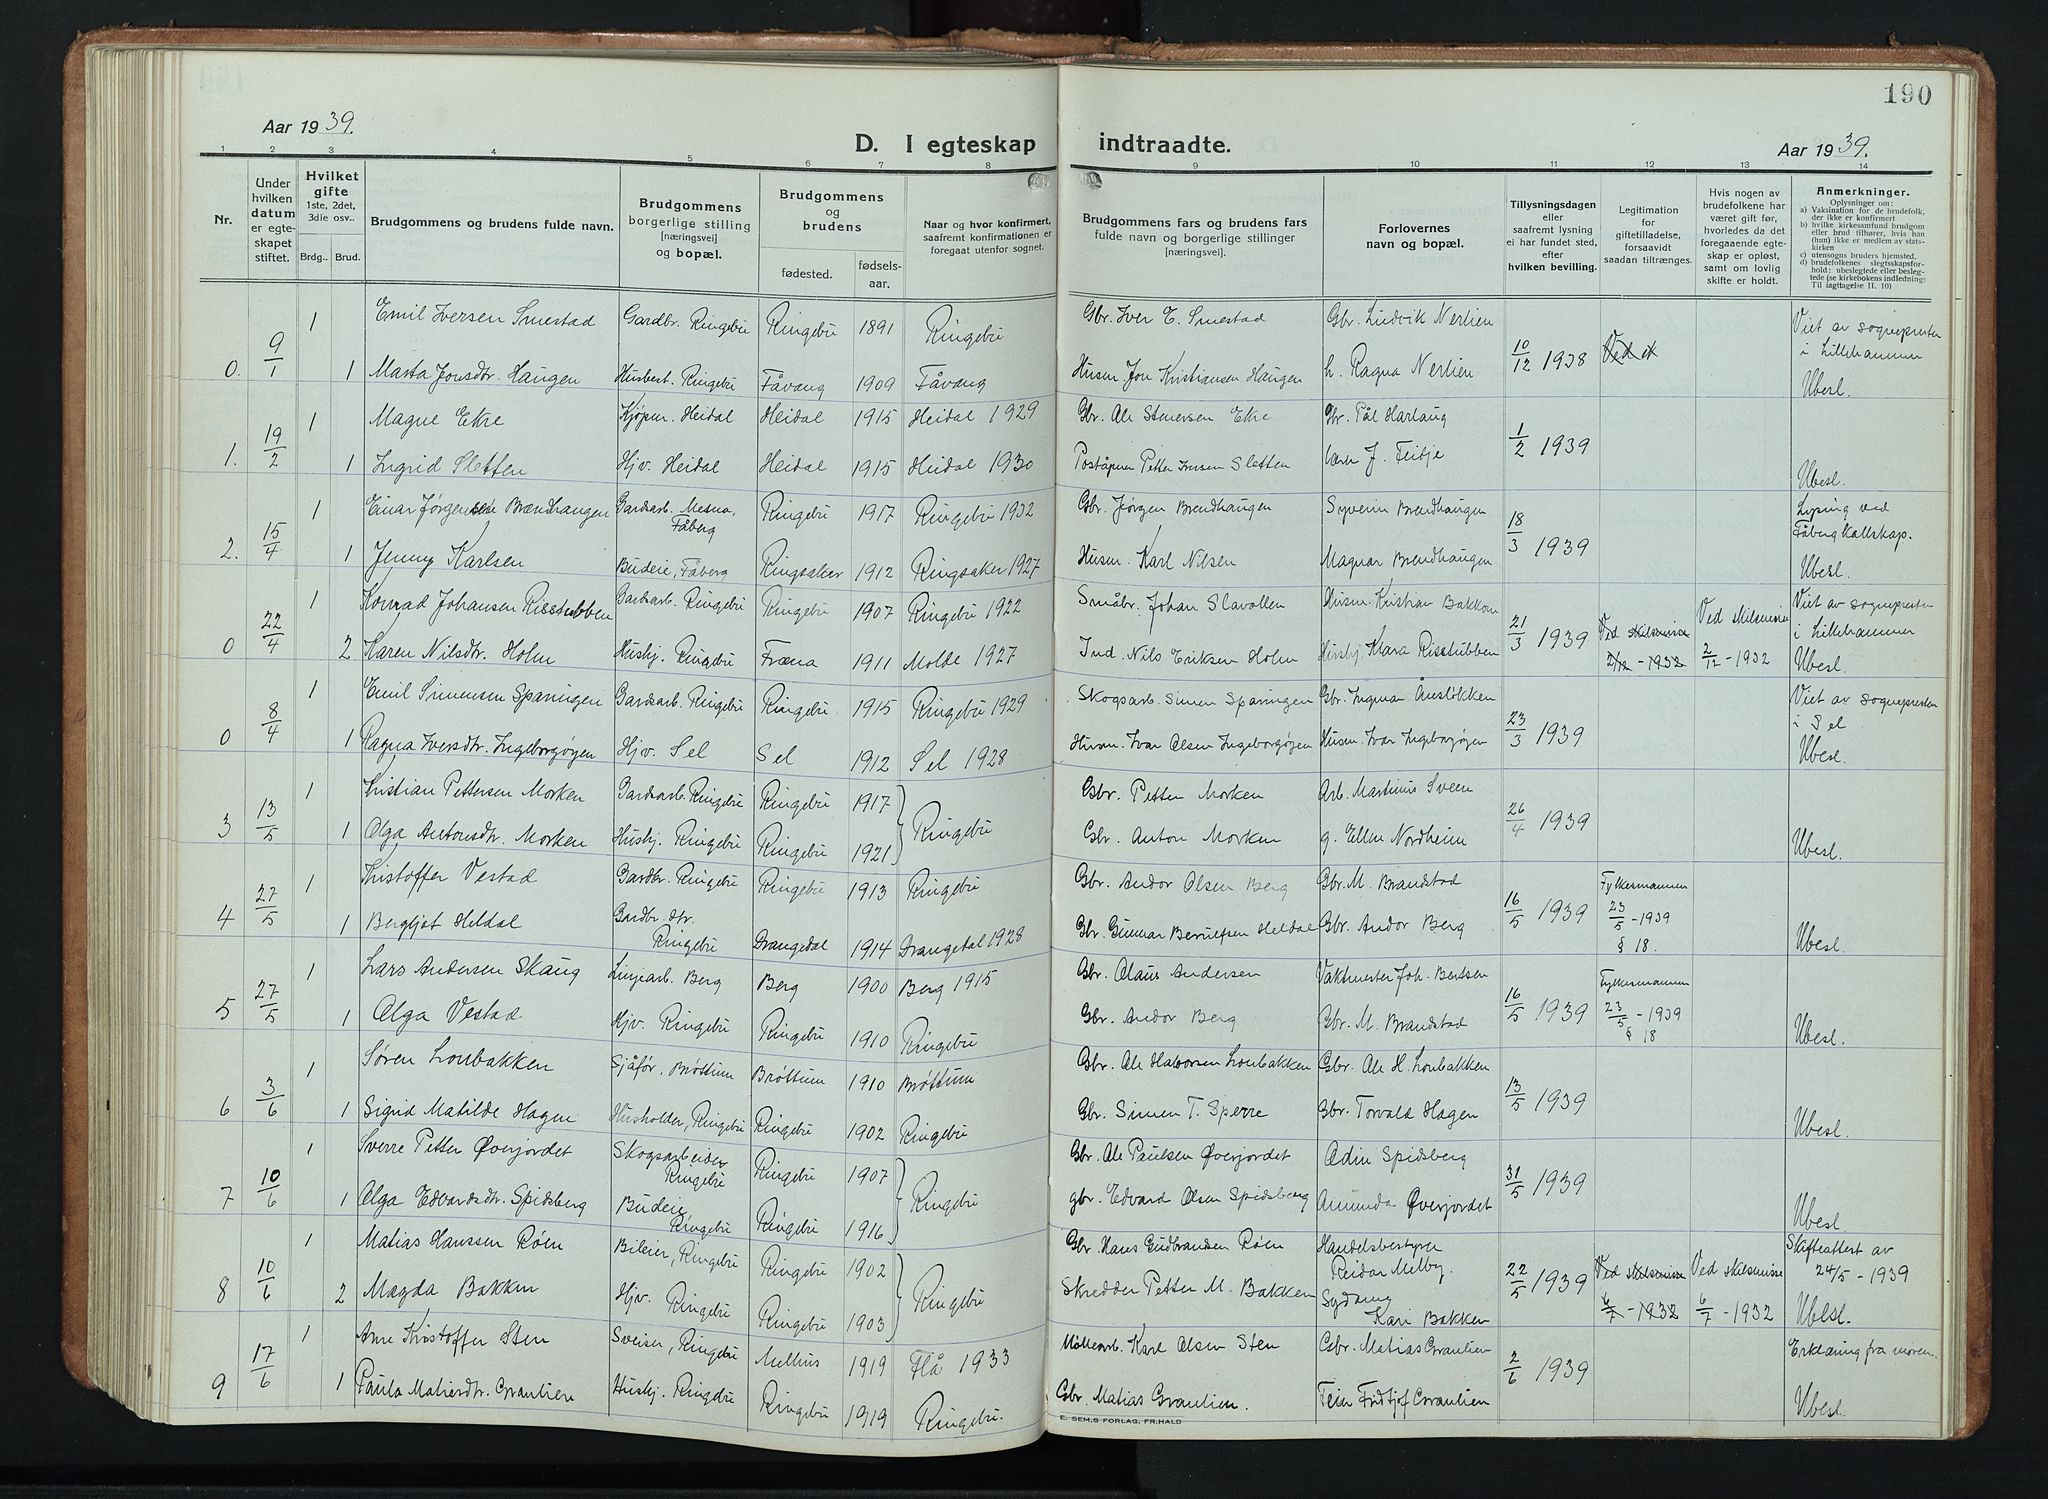 190
Aar 1939.
D. I egteskap indtraadte.
Aar 1939.
1 2 3 4 5 6 7 8 9 10 11 12 13 14
Nr.
Under hvilken datum er egteskapet stiftet.
Hvilket gifte
1ste, 2det, 3die osv..
Brdg.. Brud.
Brudgommens og brudens fulde navn.
Brudgommens borgerlige stilling [næringsvei] og bopæl.
Brudgommens og brudens
fødested.
fødselsaar.
Naar og hvor konfirmert, saafremt konfirmationen er foregaat utenfor sognet.
Brudgommens fars og brudens fars fulde navn og borgerlige stillinger [næringsvei].
Forlovernes navn og bopæl.
Tillysningsdagen eller saafremt lysning ei har fundet sted, efter hvilken bevilling.
Legitimation for giftetilladelse, forsaavidt saadan tiltrænges.
Hvis nogen av brudefolkene har været gift før, hvorledes da det foregaaende egteskap er opløst, samt om lovlig skifte er holdt.
Anmerkninger.
Oplysninger om:
a) Vaksination for de brudefolk, der ikke er konfirmert
b) hvilke kirkesamfund brudgom eller brud tilhører, hvis han (hun) ikke er medlem av statskirken
c) utensogns bruders hjemsted,
d) brudefolkenes slegtsskapsforhold: ubeslegtede eller beslegtede (se kirkebokens indledning: Til iagttagelse II, 10)
0. 9/1 1 Emil Iversen Smestad Gardbr. Ringebu Ringebu 1891 Ringebu Gbr. Iver E. Smestad Gbr. Ludvik Nerlien 10/12 1938 Viet av sogneprestn i Lillehammer
1 Marta Jonsdtr. Haugen Husbest. Ringebu Fåvang 1909 Fåvang Husm. Jon Kristiansen Haugen h. Ragna Nerlien Ubesl.
1. 19/2 1 Magne Ekre Kjøpm. Heidal Heidal 1915 Heidal 1929 Gbr. Ole Stenersen Ekre Gbr. Pål Harlaug 1/2 1939
1 Ingrid Sletten Hjv. Heidal Heidal 1915 Heidal 1930 Poståpner Petter Iversen Sletten Lærer J. Teitje Ubesl.
2. 15/4 1 Einar Jørgensen Brændhaugen Gardsarb. Mesna, Fåberg Ringebu 1917 Ringebu 1932 Gbr. Jørgen Brendhaugen Syverin Brendhaugen 18/3 1939 Lysing ved Fåberg kallskap.
1 Jenny Karlsen Budeie, Fåberg Ringsaker 1912 Ringsaker 1927 Husm. Karl Nilsen Magnar Brendhaugen Ubesl.
0 22/4 1 Konrad Johansen Risstubben Gardsarb. Ringebu Ringebu 1907 Ringebu 1922 Småbr. Johan Slavollen Husm. Kristian Bakkom 21/3 1939 Ved skilsmisse 2/12 - 1932 Ved skilsmisse 2/12 - 1932 Viet av sogneprestn i Lillehammer
2 Karen Nilsdtr. Holm Hushj. Ringebu Fræna 1911 Molde 1927 Ind. Nils Eriksen Holm Hushj. Klara Risstubben Ubesl.
0 8/4 1 Emil Simensen Sparingen Gardsarb. Ringebu Ringebu 1915 Ringebu 1929 Skogsarb. Simen Sparingen Gbr. Ingmar Ånsløkken 23/3 1939 Viet av sogneprestn i Sel
1 Ragna Iversdtr. Ingeborgøyen Hjv. Sel Sel 1912 Sel 1928 Husm. Ivar Olsen Ingeborgøyen Husm. Ivar Ingeborgøyen Ubesl.
3 13/5 1 Kristian Pettersen Morken Gardsarb. Ringebu Ringebu 1917 Ringebu Gbr. Petter Morken Arb. Martinus Sveen 26/4 1939
1 Olga Antonsdtr. Morken Hushj. Ringebu Ringebu 1921 Gbr. Anton Morken g. Ellen Nordheim Ubesl.
4 27/5 1 Kristoffer Vestad Gardbr. Ringebu Ringebu 1913 Ringebu Gbr. Andor Olsen Berg Gbr. M. Brandstad 16/5 1939 Fylkesmannen 23/5 - 1939 § 18.
1 Bergljot Heldal Gardbr. dtr. Ringebu Drangedal 1914 Drangedal 1928 Gbr. Gunnar Berulfsen Heldal Gbr. Andor Berg Ubesl.
5 27/5 1 Lars Andersen Skaug Linjearb. Berg Berg 1900 Berg 1915 Gbr. Olaus Andersen Vaktmester Joh. Bertsen 16/5 1939 Fylkesmannen 23/5 - 1939 § 18
1 Olga Vestad Hjv. Ringebu Ringebu 1910 Ringebu Gbr. Andor Berg Gbr. M. Brandstad Ubesl.
6 3/6 1 Søren Loubakken Sjåfør, Brøttum Brøttum 1910 Brøttum Gbr. Ole Halvorsen Loubakken Gbr. Ole H. Loubakken 13/5 1939
1 Sigrid Matilde Hagen Husholder, Ringebu Ringebu 1902 Ringebu Gbr. Simen T. Sperre Gbr. Torvald Hagen Ubesl.
7 10/6 1 Sverre Petter Øverjordet Skogsarbeider Ringebu Ringebu 1907 Ringebu Gbr. Ole Paulsen Øverjordet Odin Spidsberg 31/5 1939
1 Olga Edvardsdtr. Spidsberg Budeie, Ringebu Ringebu 1916 gbr. Edvard Olsen Spidsberg Amunda Øverjordet Ubesl.
8 10/6 1 Matias Hanssen Røen Bileier, Ringebu Ringebu 1902 Ringebu Gbr Hans Gudbrandsen Røen Handelsbestyrer Reidar Melby. 22/5 1939 Ved skilsmisse 6/7 - 1932 Ved skilsmisse 6/7 - 1932 Skifteattest av 24/5 - 1939
2 Magda Bakken Hjv. Ringebu Ringebu 1903 Skredder Petter M. Bakken Sydame Kari Bakken Ubesl.
9 17/6 1 Arne Kristoffer Sten Sveiser, Ringebu Melhus 1919 Flå 1933 Møllearb. Karl Olsen Sten Gbr. Matias Graulien 2/6 1939 Erklæring fra moren.
1 Paula Matiasdtr. Graulien Hushj. Ringebu Ringebu 1919 Ringebu. Gbr. Matias Graulien. Teier Fridtjof Graulien Ubesl.
E. SEM,S FORLAG, FR.HALD